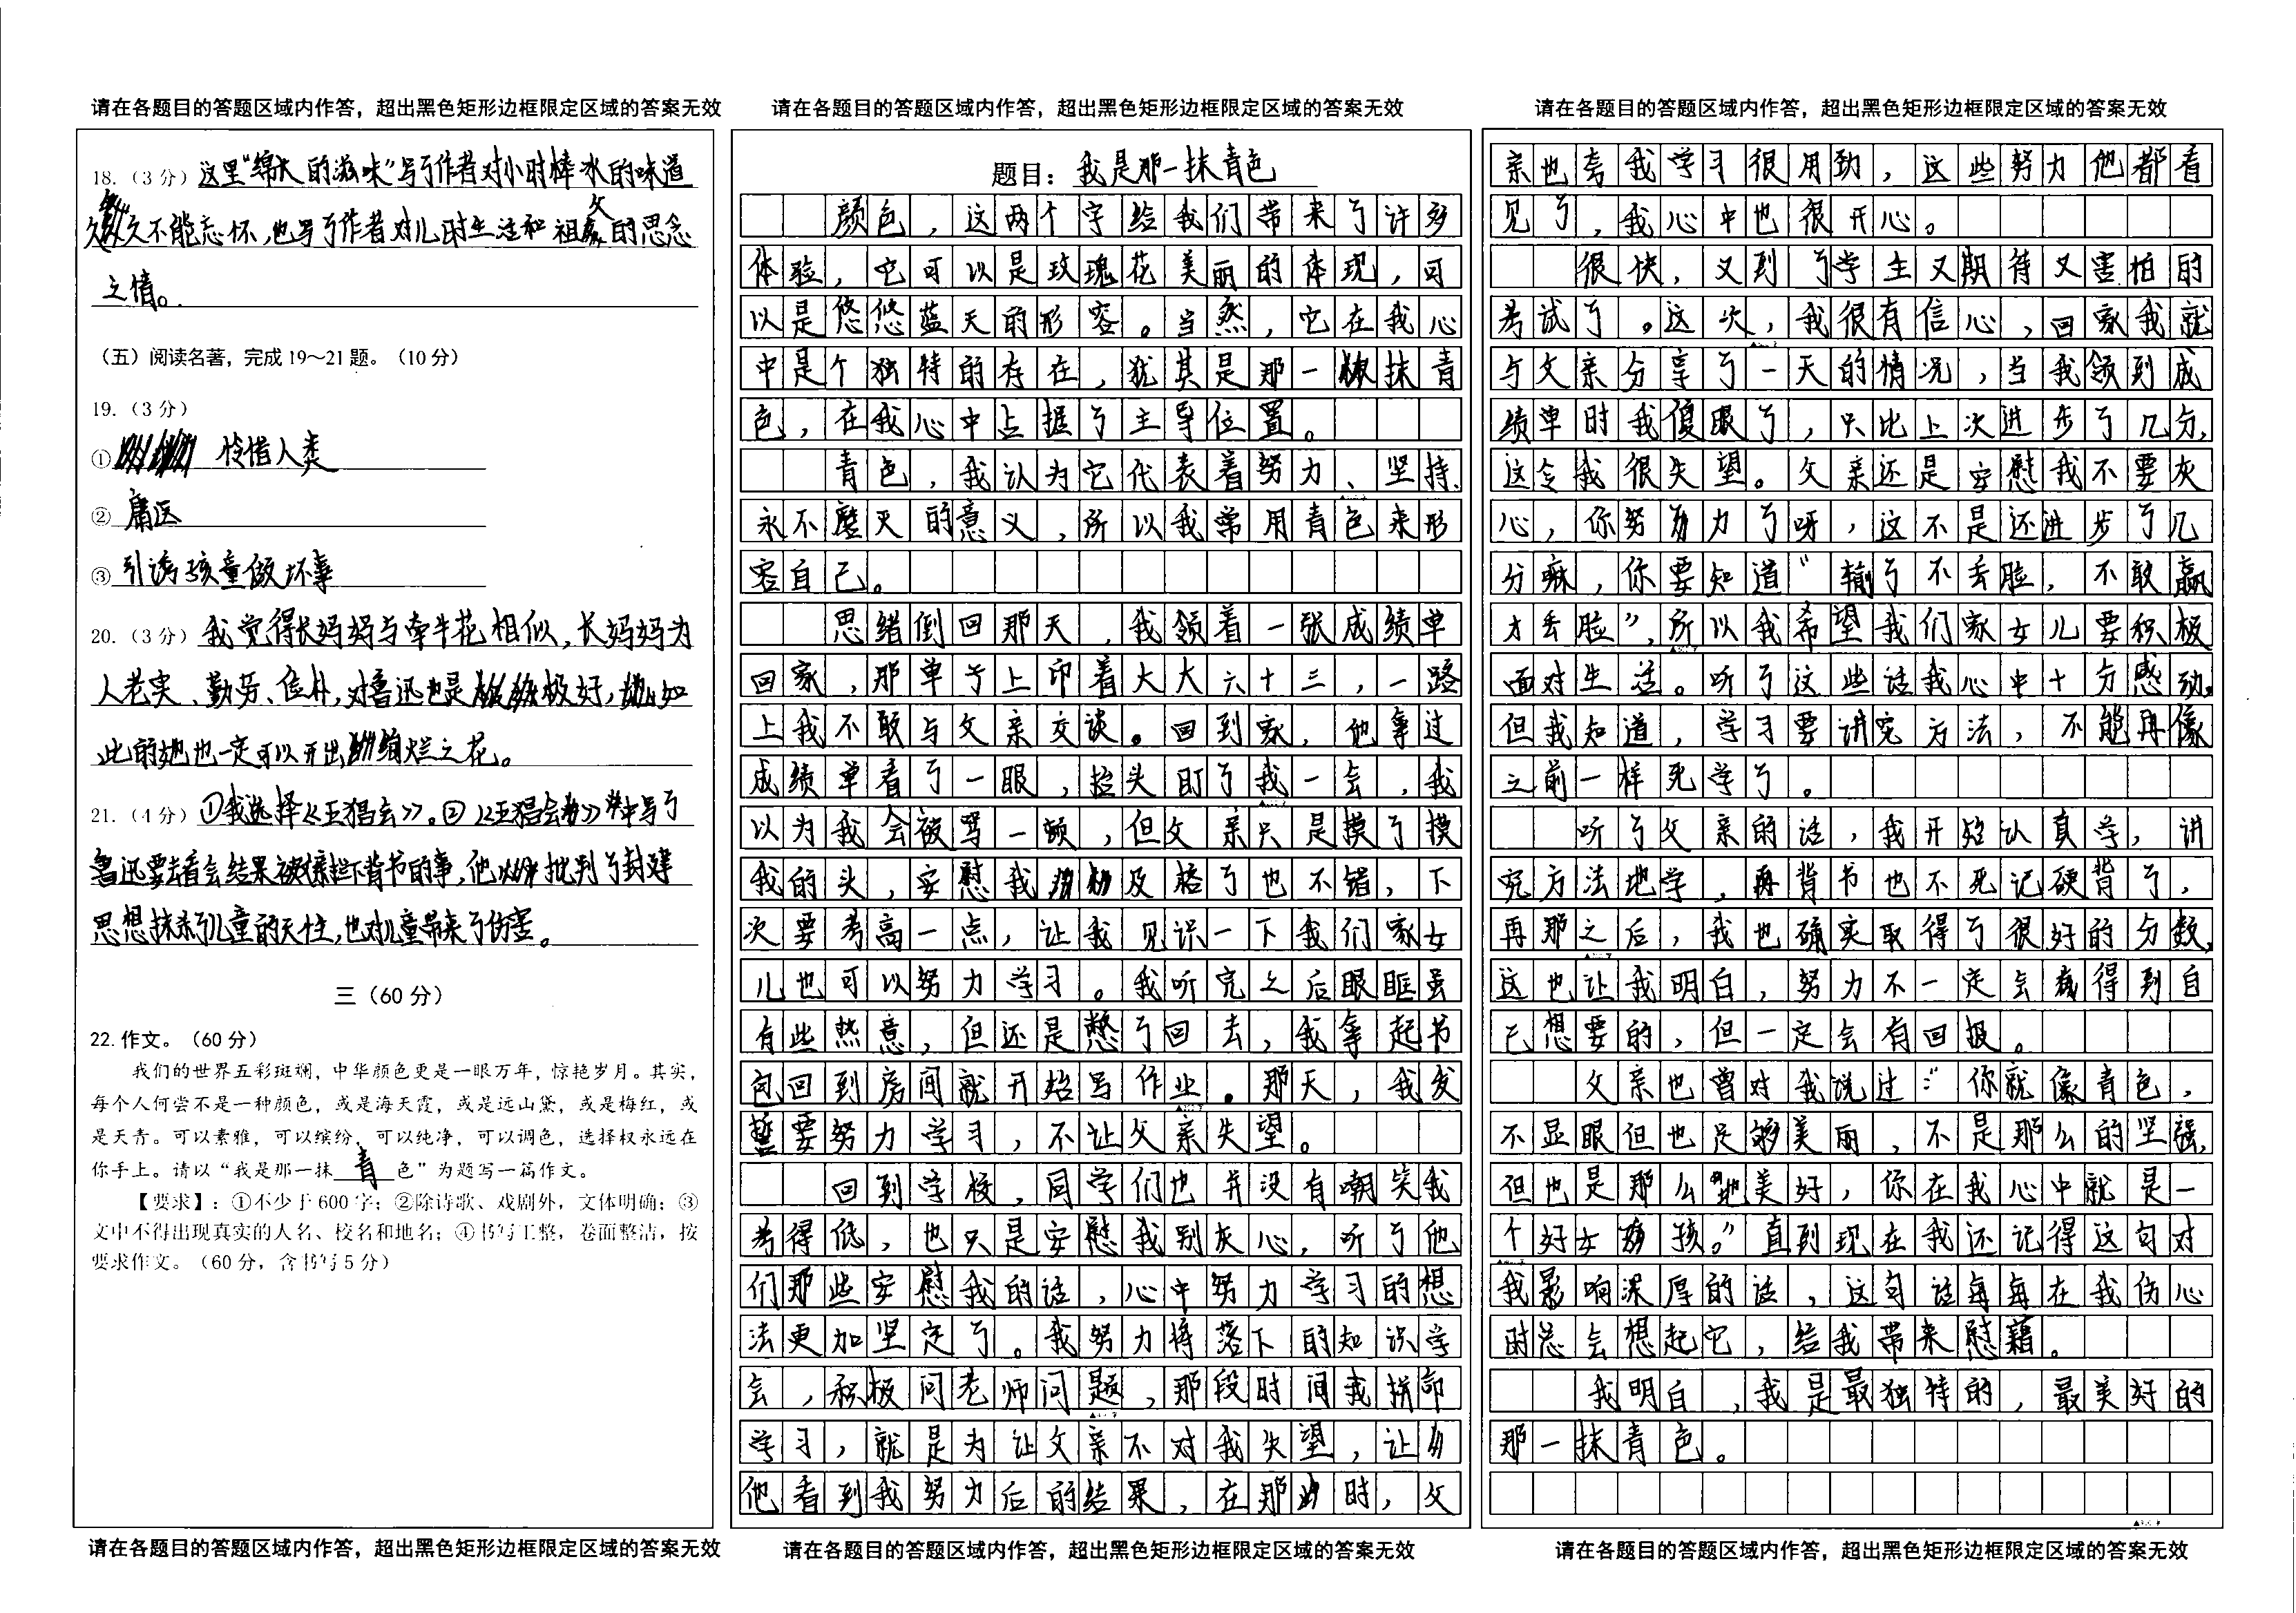 请在各题目的答题区域内作答，超出黑色矩形边框限定区域的答案无效
18.（3分）这里“绵长的滋味”写了作者对小时棒冰的味道
久久不能忘怀，也写了作者对儿时生活和祖父的思念
之情。
（五）阅读名著，完成19～21题。（10分）
19.（3分）
① 怜惜人类
② 庸医
③ 引诱孩童做坏事
20.（3分）我觉得长妈妈与牵牛花相似，长妈妈为
人老实、勤劳、质朴，对鲁迅也是极好，如
此的她也一定可以开出绚烂之花。
21.（4分）①我选择《五猖会》。②《五猖会》中写了
鲁迅要去看会结果被拦下背书的事，他批判了封建
思想抹杀了儿童的天性，也对儿童带来了伤害。
三（60分）
22.作文。（60分）
我们的世界五彩斑斓，中华颜色更是一眼万年，惊艳岁月。其实，
每个人何尝不是一种颜色，或是海天霞，或是远山黛，或是梅红，或
是天青。可以素雅，可以缤纷，可以纯净，可以调色，选择权永远在
你手上。请以“我是那一抹 青 色”为题写一篇作文。
【要求】：①不少于600字；②除诗歌、戏剧外，文体明确；③
文中不得出现真实的人名、校名和地名；④书写工整，卷面整洁，按
要求作文。（60分，含书写5分）
请在各题目的答题区域内作答，超出黑色矩形边框限定区域的答案无效
请在各题目的答题区域内作答，超出黑色矩形边框限定区域的答案无效
题目：我是那一抹青色
颜色，这两个字给我们带来了许多
体验，它可以是玫瑰花美丽的体现，可
以是悠悠蓝天的形容。当然，它在我心
中是个独特的存在，犹其是那一抹青
色，在我心中占据了主导位置。
青色，我认为它代表着努力、坚持、
永不磨灭的意义，所以我常用青色来形
容自己。
思绪倒回那天，我领着一张成绩单
回家，那单子上印着大大六十三，一路
上我不敢与父亲交谈。回到家，他拿过
成绩单看了一眼，抬头盯了我一会，我
以为我会被骂一顿，但父亲只是摸了摸
我的头，安慰我及格了也不错，下
次要考高一点，让我见识一下我们家女
儿也可以努力学习。我听完之后眼眶虽
有些热意，但还是憋了回去，我拿起书
包回到房间就开始写作业。那天，我发
誓要努力学习，不让父亲失望。
回到学校，同学们也并没有嘲笑我
考得低，也只是安慰我别灰心，听了他
们那些安慰我的话，心中努力学习的想
法更加坚定了。我努力将落下的知识学
会，积极问老师问题，那段时间我拼命
学习，就是为让父亲不对我失望，让
他看到我努力后的结果，在那时，父
请在各题目的答题区域内作答，超出黑色矩形边框限定区域的答案无效
请在各题目的答题区域内作答，超出黑色矩形边框限定区域的答案无效
亲也夸我学习很用劲，这些努力他都看
见了，我心中也很开心。
很快，又到了学生又期待又害怕的
考试了。这次，我很有信心，回家我就
与父亲分享了一天的情况，当我领到成
绩单时我傻眼了，只比上次进步了几分，
这令我很失望。父亲还是安慰我不要灰
心，你努力了呀，这不是还进步了几
分嘛，你要知道“输了不丢脸，不敢赢
才丢脸”，所以我希望我们家女儿要积极
面对生活。听了这些话我心中十分感动。
但我知道，学习要讲究方法，不能再像
之前一样死学了。
听了父亲的话，我开始认真学，讲
究方法地学，再背书也不死记硬背了，
再那之后，我也确实取得了很好的分数，
这也让我明白，努力不一定会得到自
己想要的，但一定会有回报。
父亲也曾对我说过：“你就像青色，
不显眼但也足够美丽，不是那么的坚强，
但也是那么地美好，你在我心中就是一
个好女孩。”直到现在我还记得这句对
我影响深厚的话，这句话每每在我伤心
时总会想起它，给我带来慰藉。
我明白，我是最独特的，最美好的
那一抹青色。
请在各题目的答题区域内作答，超出黑色矩形边框限定区域的答案无效